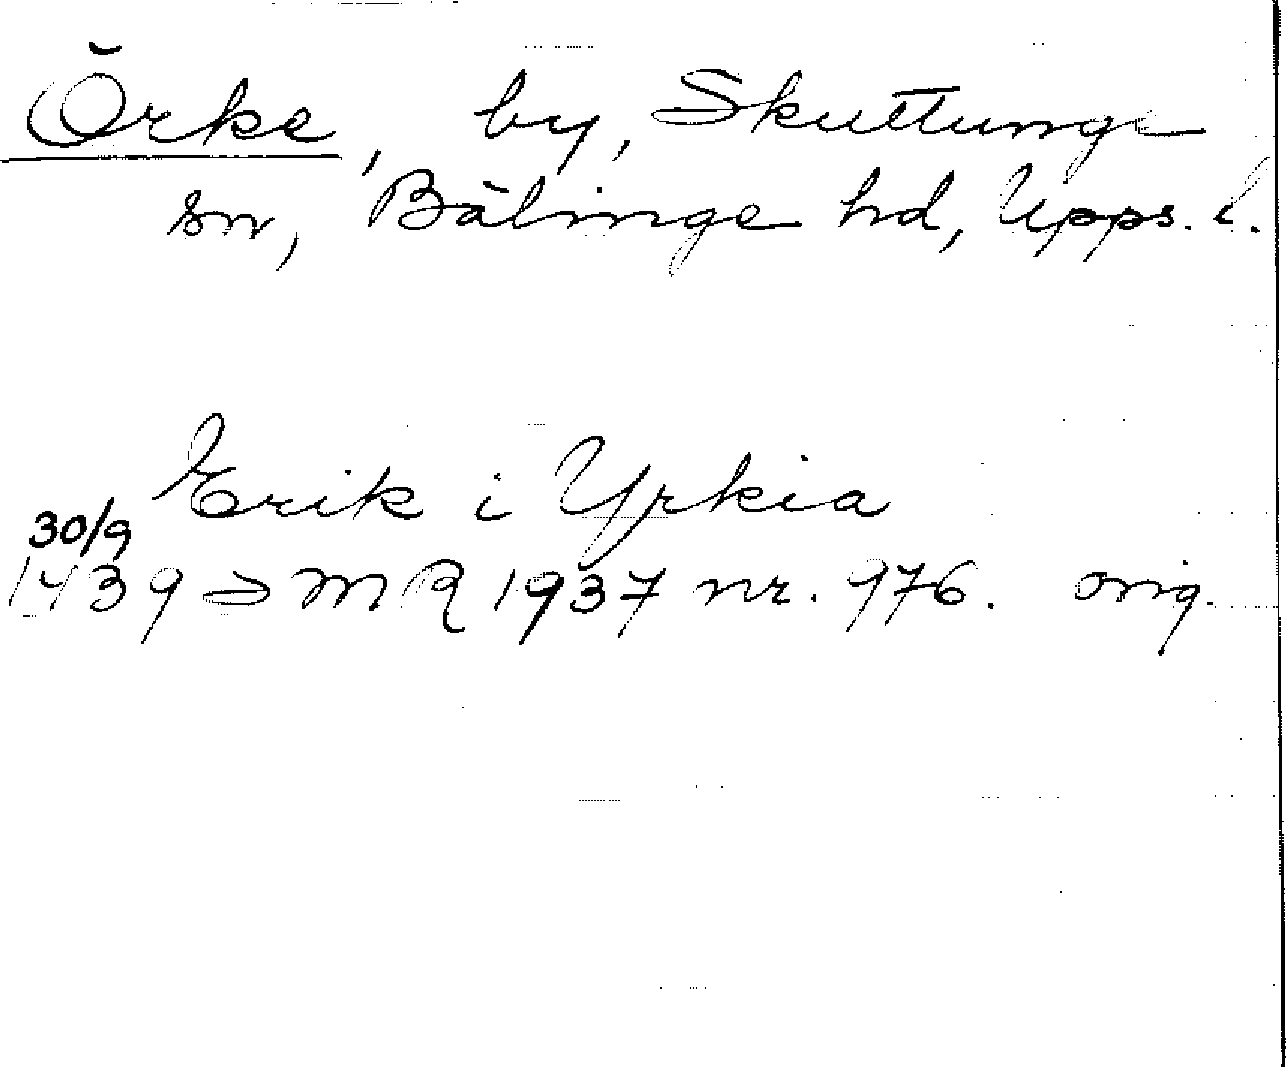 Örke, by, Skuttunge
sn, Bälinge hd, Upps. l.
Erik i Yrkia
30/9
1439 SMR 1937 nr. 976. orig.